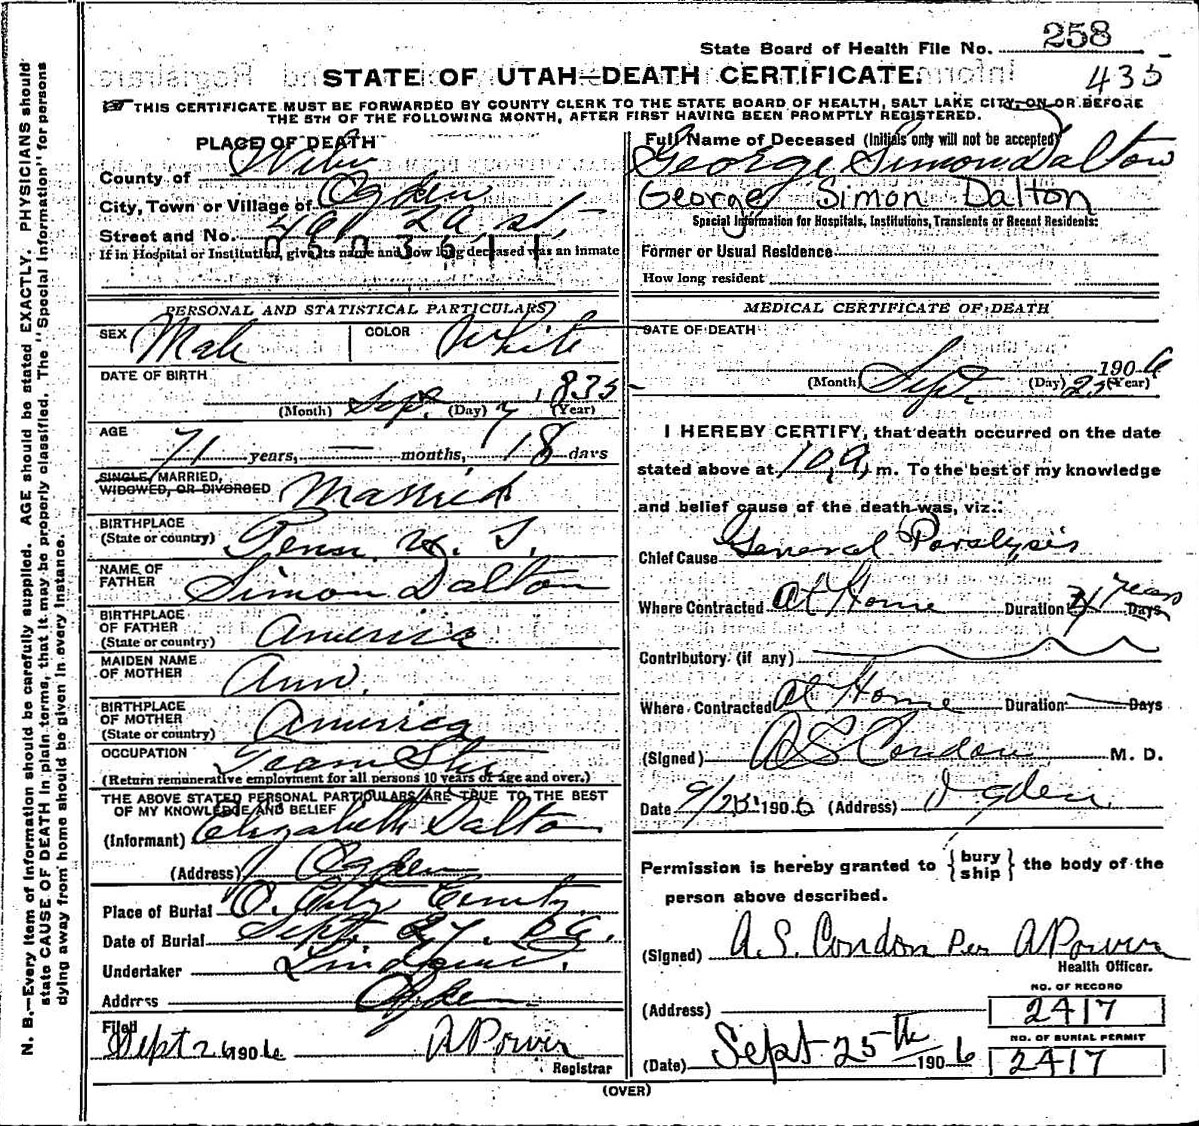 State Board of Health File No. 258
435
STATE OF UTAH—DEATH CERTIFICATE.
THIS CERTIFICATE MUST BE FORWARDED BY COUNTY CLERK TO THE STATE BOARD OF HEALTH, SALT LAKE CITY, ON OR BEFORE
THE 5TH OF THE FOLLOWING MONTH, AFTER FIRST HAVING BEEN PROMPTLY REGISTERED.
N. B.—Every item of information should be carefully supplied. AGE should be stated EXACTLY. PHYSICIANS should
state CAUSE OF DEATH in plain terms, that it may be properly classified. The "Special Information" for persons
dying away from home should be given in every instance.
PLACE OF DEATH
County of Weber
City, Town or Village of Ogden
Street and No. st,
0503511
If in Hospital or Institution, give its name and how long deceased was an inmate
PERSONAL AND STATISTICAL PARTICULARS
SEX Male COLOR White
DATE OF BIRTH
(Month) Sep. (Day) 7 1835 (Year)
AGE
71 years, — months, 18 days
SINGLE, MARRIED,
WIDOWED, OR DIVORCED Married
BIRTHPLACE
(State or country) Penn. U. S.
NAME OF
FATHER Simon Dalton
BIRTHPLACE
OF FATHER
(State or country) America
MAIDEN NAME
OF MOTHER Ann.
BIRTHPLACE
OF MOTHER
(State or country) America
OCCUPATION Team Ster
(Return remunerative employment for all persons 10 years of age and over.)
THE ABOVE STATED PERSONAL PARTICULARS ARE TRUE TO THE BEST
OF MY KNOWLEDGE AND BELIEF
(Informant) Elizabeth Dalton
(Address) Ogden
Place of Burial O. City Cemty.
Date of Burial Sept. 27. 06.
Undertaker Lindquist.
Address Ogden
Filed
Sept 26 1906 A Power
Registrar
Full Name of Deceased (Initials only will not be accepted)
George Simon Dalton
George Simon Dalton
Special Information for Hospitals, Institutions, Transients or Recent Residents:
Former or Usual Residence
How long resident
MEDICAL CERTIFICATE OF DEATH
DATE OF DEATH
(Month) Sept. (Day) 25 1906 (Year)
I HEREBY CERTIFY, that death occurred on the date
stated above at 10 a. m. To the best of my knowledge
and belief cause of the death was, viz.:
Chief Cause General Paralysis
Where Contracted At Home Duration Years Days
Contributory (if any)
Where Contracted At Home Duration — Days
(Signed) A S Condon M. D.
Date 9/25 1906 (Address) Ogden
Permission is hereby granted to {bury ship} the body of the
person above described.
(Signed) A. S. Condon Per A Power
Health Officer.
(Address)
NO. OF RECORD
2417
(Date) Sept 25th 1906
NO. OF BURIAL PERMIT
2417
(OVER)